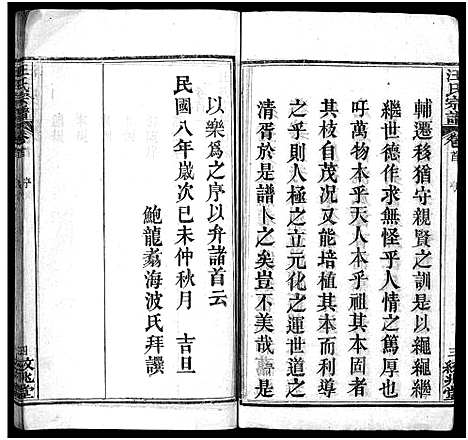 汪氏宗譜
卷首
序
輔遷移猶守親賢之訓是以繩繩繼
繼世德作求無怪乎人情之篤厚也
吁萬物本乎天人本乎祖其本固者
其枝自茂况又能培植其本而利導
之乎則人極之立元化之運世道之
清胥於是譜卜之矣豈不美哉是爲
以樂爲之序以弁諸首云
民國八年歲次己未仲秋月 吉旦
鮑龍翥海波氏拜譔
汪氏宗譜
卷首
序